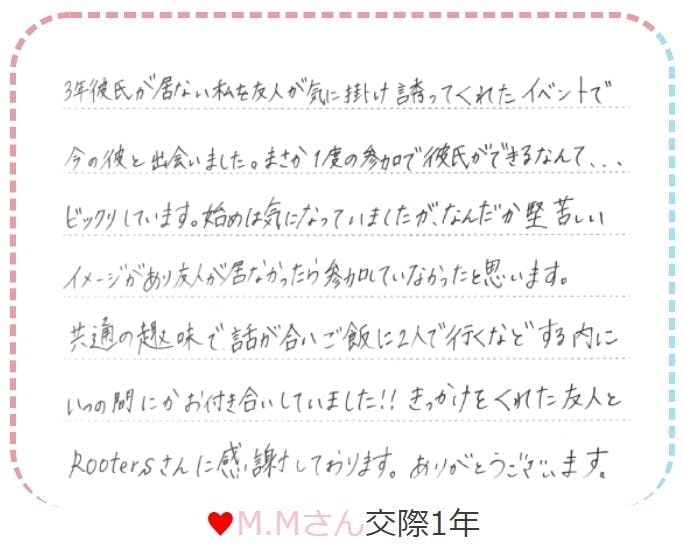 3年彼氏が居ない私を友人が気に掛け誘ってくれたイベントで
今の彼と出会いました。まさか1度の参加で彼氏ができるなんて、、、
ビックリしています。始めは気になっていましたが、なんだか堅苦しい
イメージがあり友人が居なかったら参加していなかったと思います。
共通の趣味で話が合いご飯に2人で行くなどする内に
いつの間にかお付き合いしていました!! きっかけをくれた友人と
Rootersさんに感謝しております。ありがとうございます。
♥M.Mさん交際1年